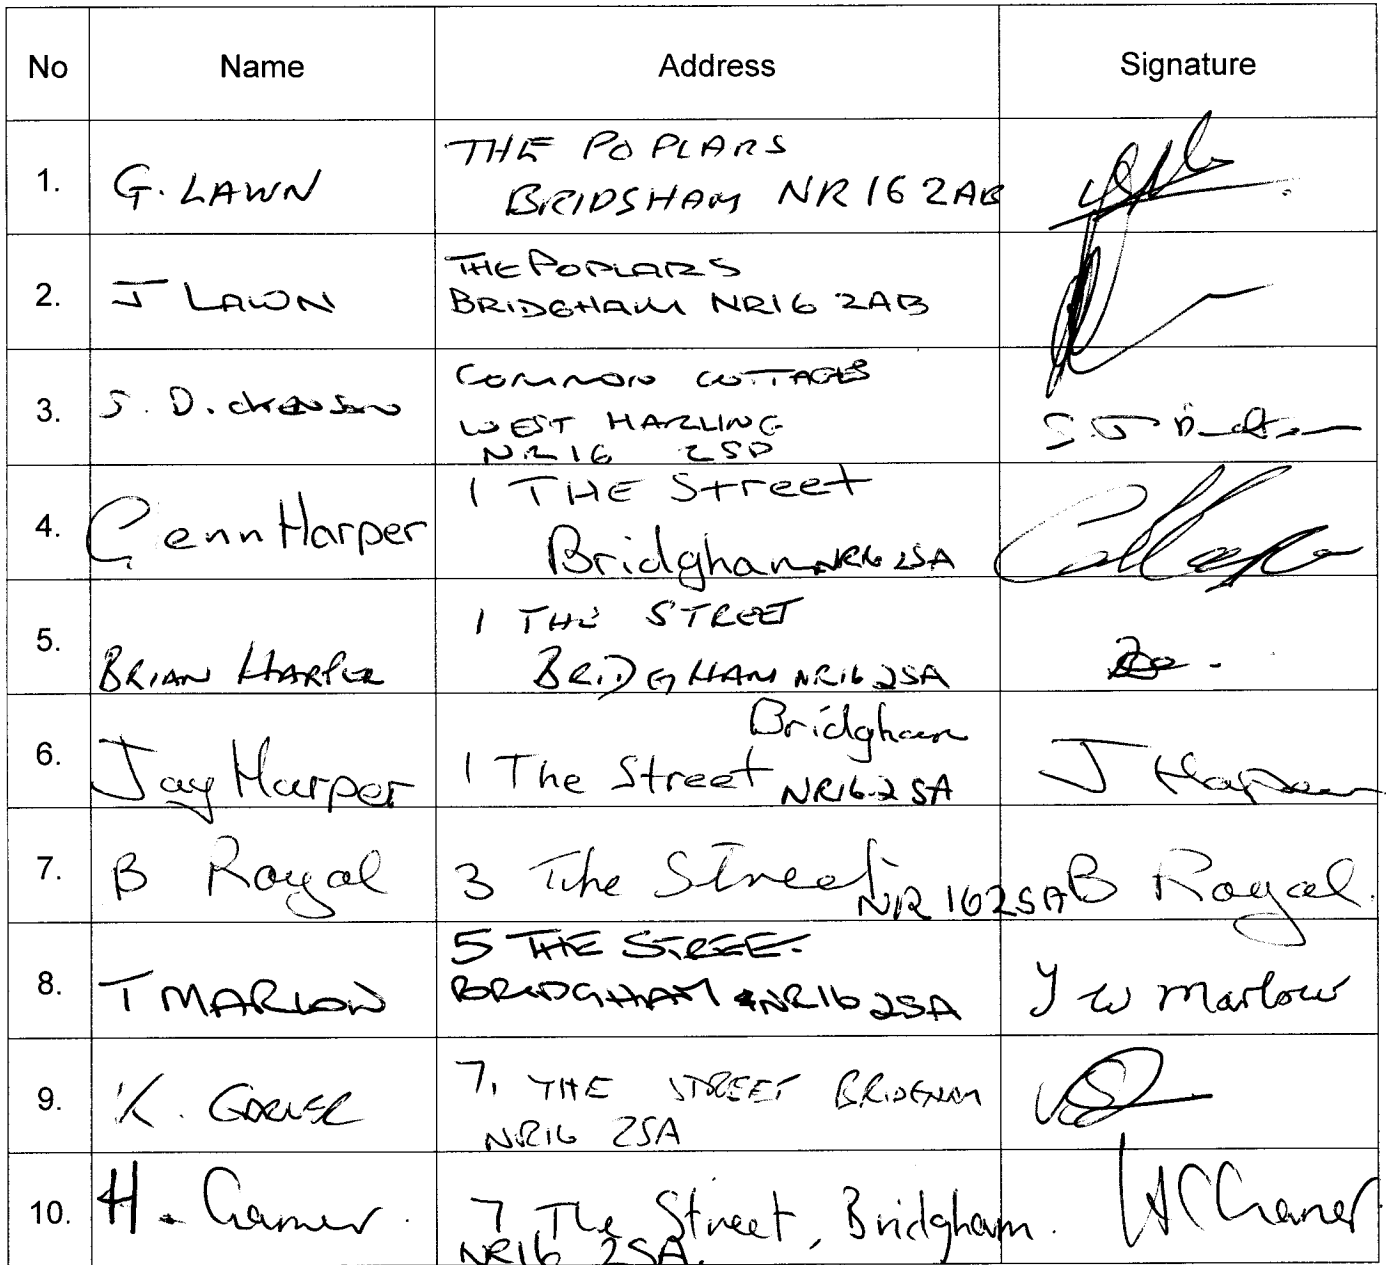 No Name Address Signature
1. G. LAWN THE POPLARS
BRIDSHAM NR16 2AB
2. J LAWN THE POPLARS
BRIDGHAM NR16 2AB
3. S. Dickenson COMMON COTTAGES
WEST HARLING
NR16 2SD
4. Genn Harper 1 THE Street
Bridgham NR16 2SA
5. BRIAN HARPER 1 THE STREET
BRIDGHAM NR16 2SA
6. Jay Harper 1 The Street Bridgham
NR16 2SA J Harper
7. B Royal 3 The Street NR16 2SA B Royal.
8. T MARLOW 5 THE STREE
BRIDGHAM NR16 2SA T W Marlow
9. K. 7, THE STREET BRIDGHAM
NR16 2SA
10. H. 7 The Street, Bridgham.
NR16 2SA.